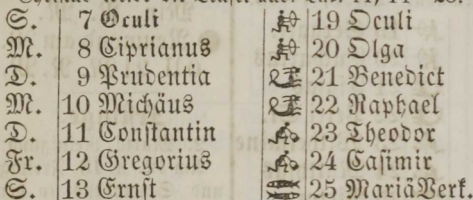 S. 7 Oculi 19 Oculi
M. 8 Ciprianus 20 Olga
D. 9 Prudentia 21 Benedict
M. 10 Michäus 22 Raphael
D. 11 Constantin 23 Theodor
Fr. 12 Gregorius 24 Casimir
S. 13 Ernst 25 MariäVerk.